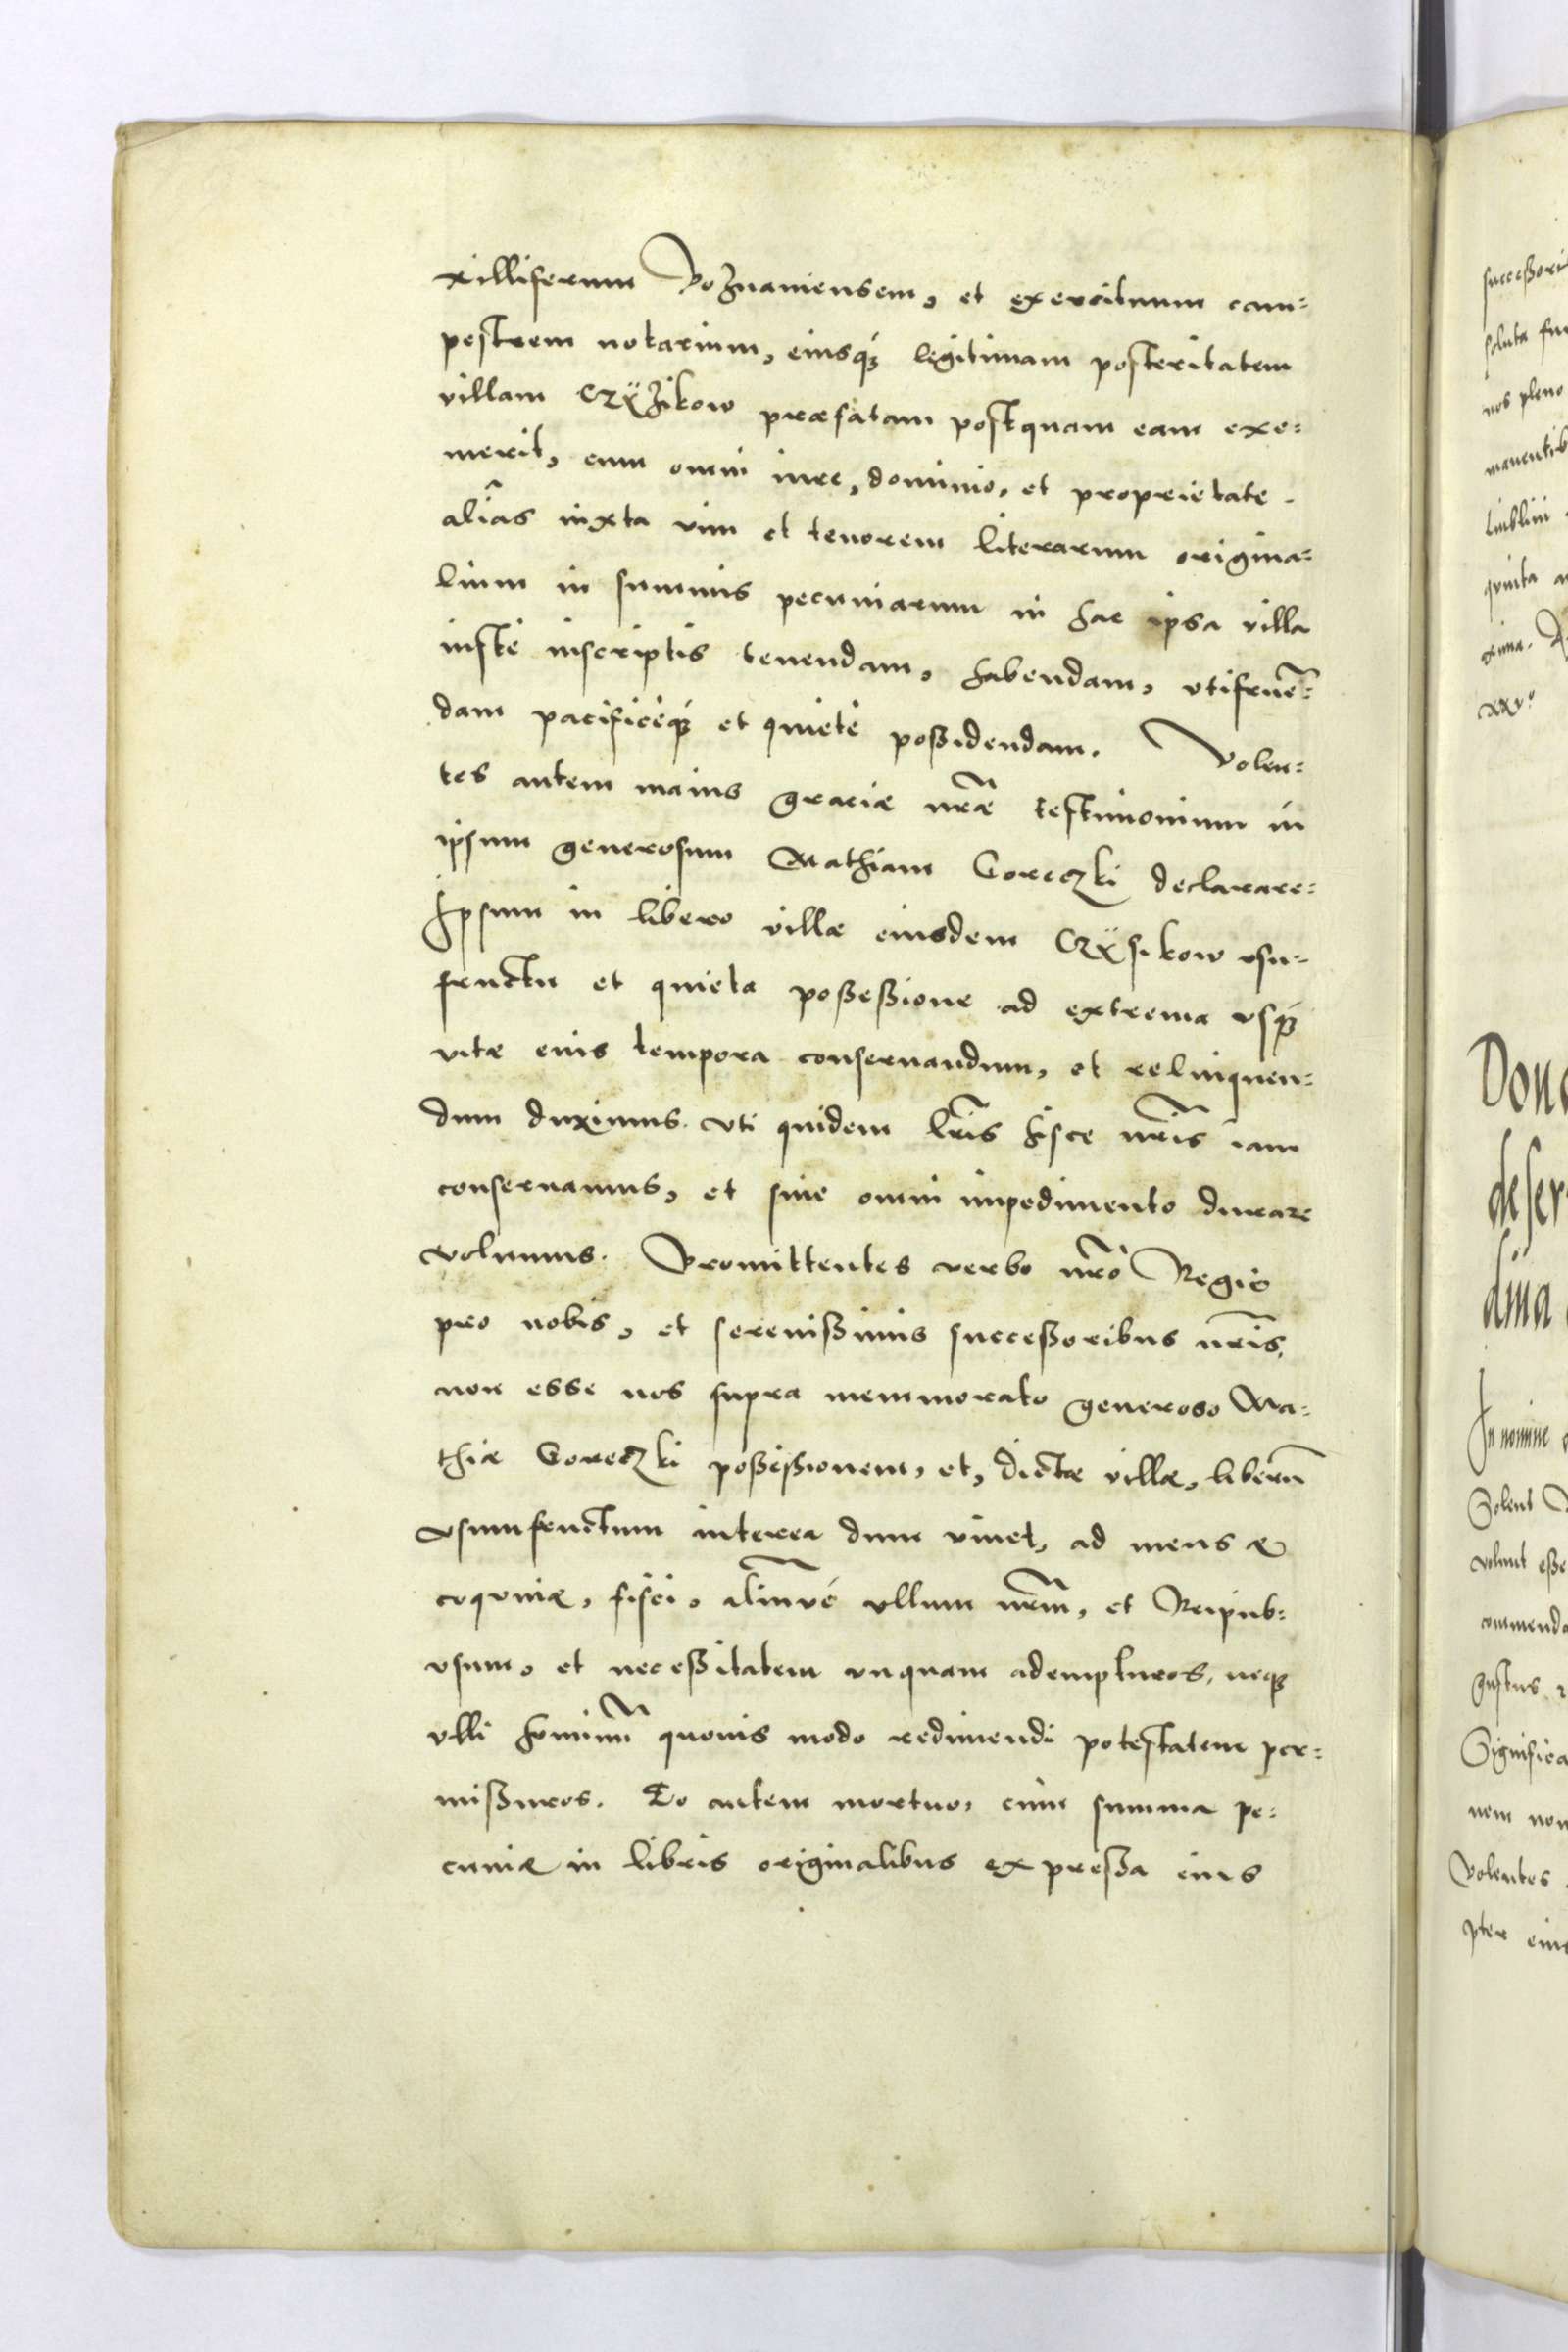 xilliferum Poznaniensem, et exercituum cam=
pestrem notarium, eiusq́ꝫ legitimam posteritatem
villam Czÿżikow præfatam postquam eam exe=
merit, cum omni iure, dominio, et proprietate.
aliãs iuxta vim et tenorem literarum origina=
lium in summis pecuniarum in hac ipsa villa
iustè inscriptis tenendam, habendam, vtifruẽ=
dam pacificèq́ꝫ et quietè poßidendam. Volen=
tes autem maius graciæ nr̃æ testimonium in
ipsum generosum Mathiam Goreczki declarare=
Ipsum in libero villæ eiusdem Czÿsikow vsu=
fructu et quieta poßeßione ad extrema vsq́ꝫ
vitæ eius tempora conseruandum, et relinquen=
dum duximus. vti quidem lr̃is hisce nr̃is iam
conseruamus, et sine omni impedimento durare
volumus. Promittentes verbo nr̃o Regio
pro nobis, et serenißimis succeßoribus nr̃is,
non esse nos supra memmorato generoso Ma=
thiæ Goreczki poßeßionem, et, dictæ villæ, liberũ
vsumfructum interea dum viuet, ad mensæ
coquinæ, fisci, aliũvé vllum nr̃m, et Reipub=
vsum, et neceßitatem vnquam adempturos, neqꝫ
vlli hominũ quouis modo redimendi potestatem per=
mißuros. Eo autem mortuo, cum summa pe=
cuniæ in libris originalibus expreßa eius
succeßori
soluta fu
nos pleno
manentib
Lublini
quinta
xxvº
Dona
de ser
dina
In nomine
Solent
volunt eße
commenda
gustus
Significa
nem non
Volentes
pter eius